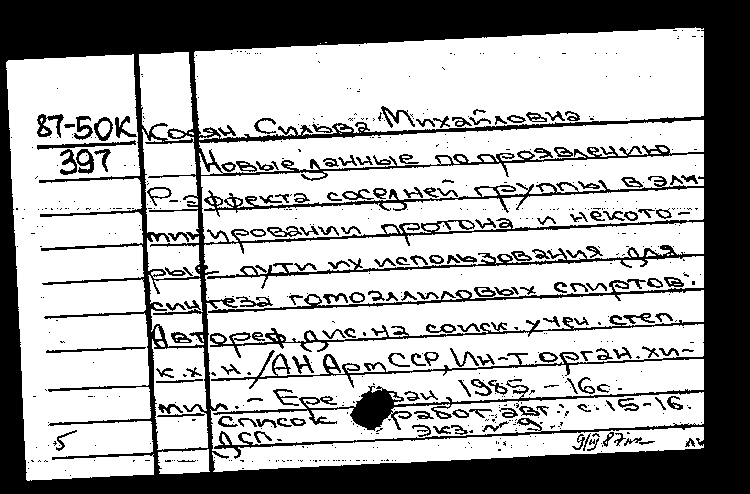 87-50К
397
Косян, Сильва Михайловна.
Новые данные по проявлению
Р-эффекта соседней группы в эли-
минировании протона и некото-
рые пути их использования для
синтеза гомоаллиловых спиртов:
Автореф. дис. на соиск. учен. степ.
к.х.н. / АН АрмССР, Ин-т орган. хи-
мии. - Ереван, 1985. - 16с.
список работ авт.: с. 15-16.
ДСП. экз. № 9
5